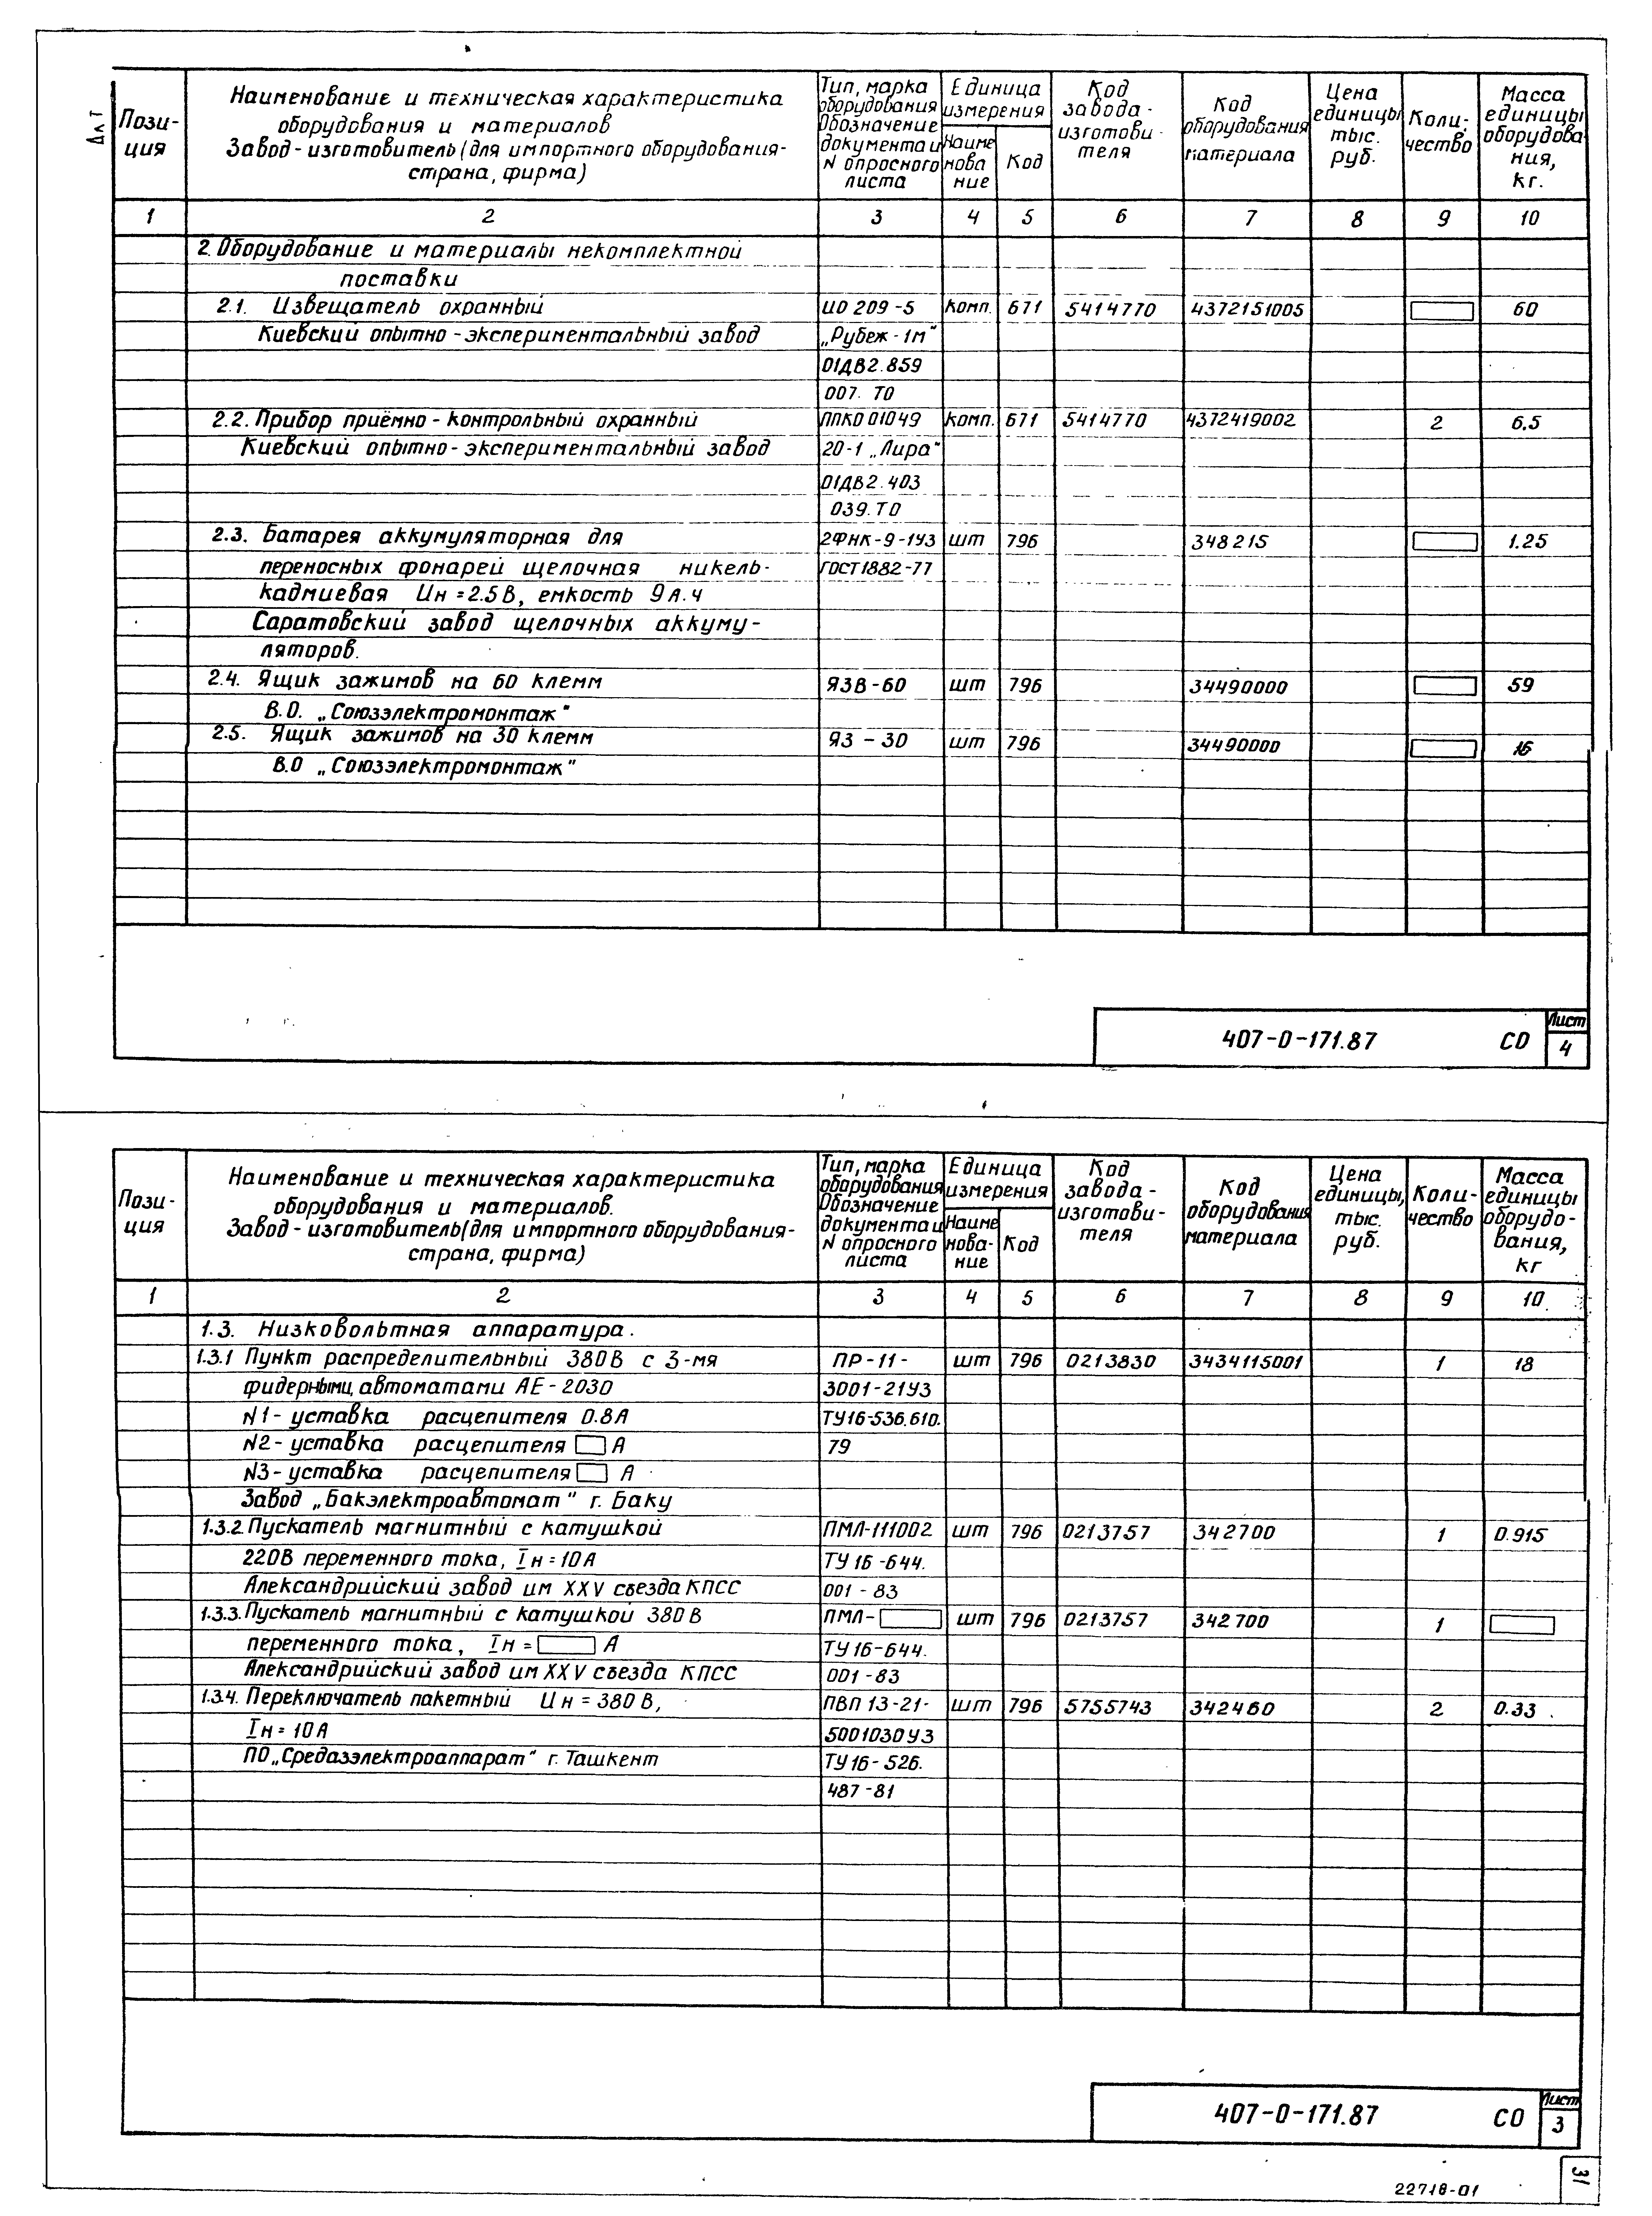 Пози-
ция
Наименование и техническая характеристика
оборудования и материалов
Завод-изготовитель (для импортного оборудования-
страна, фирма)
Тип, марка
оборудования
Обозначение
документа и
N опросного
листа
Единица
измерения
Наиме
нова
ние
Код
Код
завода-
изготови-
теля
Код
оборудования
материала
Цена
единицы
тыс.
руб.
Коли-
чество
Масса
единицы
оборудова
ния,
кг.
1 2 3 4 5 6 7 8 9 10
2. Оборудование и материалы некомплектной
поставки
2.1. Извещатель охранный ИО 209-5 комп. 671 5414770 4372151005 60
Киевский опытно-экспериментальный завод „Рубеж-1м"
01ДВ2.859
007. ТО
2.2. Прибор приёмно-контрольный охранный ППКО 01049 комп. 671 5414770 4372419002 2 6.5
Киевский опытно-экспериментальный завод 20-1 „Лира"
01ДВ2.403
039.ТО
2.3. Батарея аккумуляторная для 2ФНК-9-1У3 шт 796 348215 1.25
переносных фонарей щелочная никель- ГОСТ1882-77
кадмиевая Uн=2.5В, емкость 9А.ч
Саратовский завод щелочных аккуму-
ляторов.
2.4. Ящик зажимов на 60 клемм ЯЗВ-60 шт 796 34490000 59
В.О. „Союзэлектромонтаж"
2.5. Ящик зажимов на 30 клемм ЯЗ-30 шт 796 34490000 16
В.О „Союзэлектромонтаж"
407-0-171.87 СО
Лист
4
Пози-
ция
Наименование и техническая характеристика
оборудования и материалов.
Завод-изготовитель (для импортного оборудования-
страна, фирма)
Тип, марка
оборудования
Обозначение
документа и
N опросного
листа
Единица
измерения
Наиме
нова-
ние
Код
Код
завода-
изготови-
теля
Код
оборудования
материала
Цена
единицы,
тыс.
руб.
Коли-
чество
Масса
единицы
оборудо-
вания,
кг
1 2 3 4 5 6 7 8 9 10
1.3. Низковольтная аппаратура.
1.3.1 Пункт распределительный 380В с 3-мя ПР-11- шт 796 0213830 3434115001 1 18
фидерными автоматами АЕ-2030 3001-21У3
N1-уставка расцепителя 0.8А ТУ16-536.610.
N2-уставка расцепителя А 79
N3-уставка расцепителя А
Завод „Бакэлектроавтомат" г. Баку
1.3.2 Пускатель магнитный с катушкой ПМЛ-111002 шт 796 0213757 342700 1 0.915
220В переменного тока, Iн=10А ТУ 16-644.
Александрийский завод им XXV съезда КПСС 001-83
1.3.3. Пускатель магнитный с катушкой 380В ПМЛ- шт 796 0213757 342700 1
переменного тока, Iн= А ТУ 16-644.
Александрийский завод им XXV съезда КПСС 001-83
1.3.4. Переключатель пакетный Uн=380В, ПВП 13-21- шт 796 5755743 342460 2 0.33
Iн=10А 5001030У3
ПО „Средазэлектроаппарат" г. Ташкент ТУ 16-526.
487-81
407-0-171.87 СО
Лист
3
31
22718-01